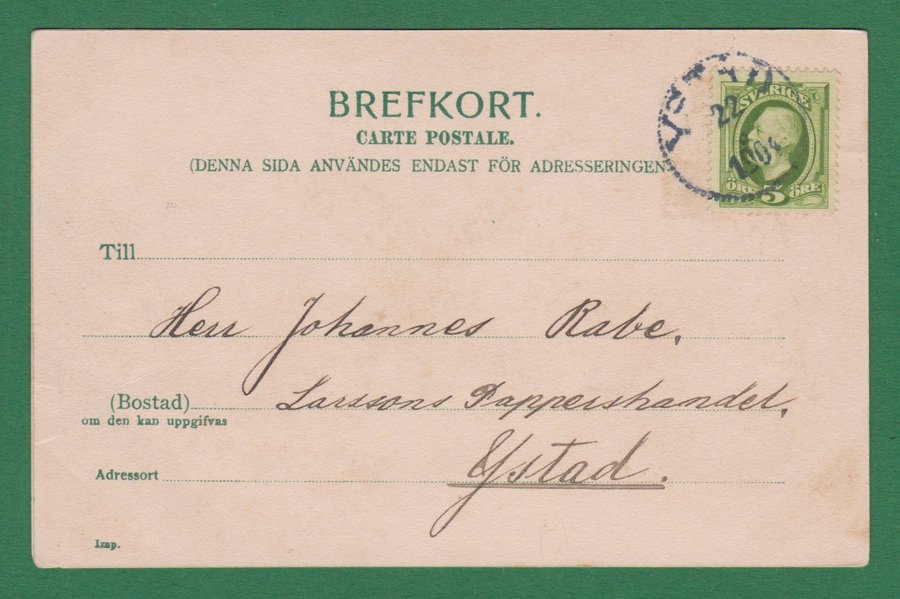 BREFKORT.
CARTE POSTALE.
(DENNA SIDA ANVÄNDES ENDAST FÖR ADRESSERINGEN
YSTAD
22
1904
SVERIGE
ÖRE 5 ÖRE
Till
Herr Johannes Rabe.
(Bostad) Larssons Pappershandel.
om den kan uppgifvas
Adressort Ystad.
Imp.